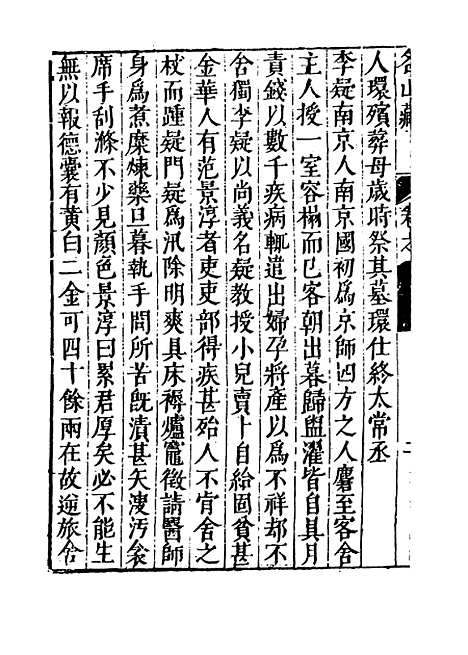 名山藏 卷之
人環殯葬母歲時祭其墓環仕終太常丞
李疑南京人南京國初爲京師四方之人麏至客舍
主人授一室容榻而已客朝出暮歸盥濯皆自具月
責錢以數千疾病輒遣出婦孕將產以爲不祥却不
舍獨李疑以尚義名疑教授小兒賣卜自給固貧甚
金華人有范景淳者吏吏部得疾甚殆人不肯舍之
杖而踵疑門疑爲汛除明爽具床褥爐竈徵請醫師
身爲煮糜煉藥旦暮執手問所苦旣潰甚矢溲污衾
席手刮滌不少見顏色景淳曰累君厚矣必不能生
無以報德囊有黃白二金可四十餘兩在故逆旅舍